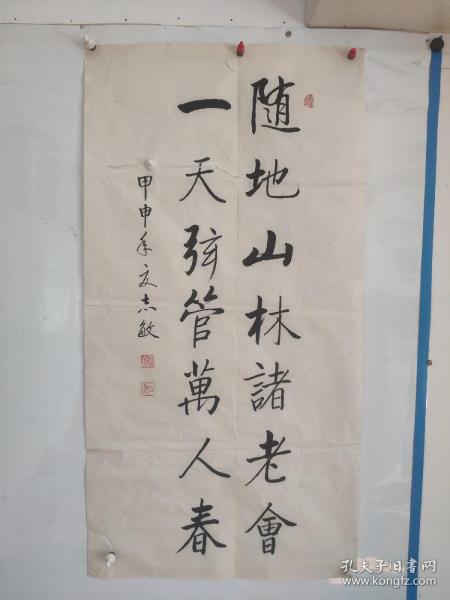 随地山林諸老會
一天弦管萬人春
甲申年夏志敏
孔夫子旧书网
www.kongfz.com